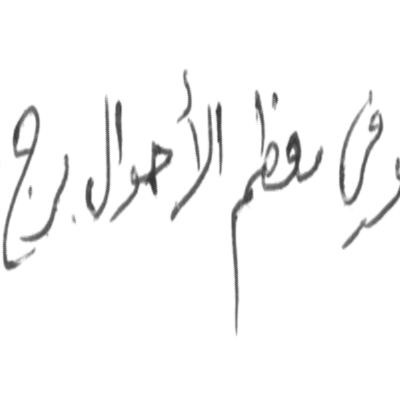 وفي معظم الأحوال برج